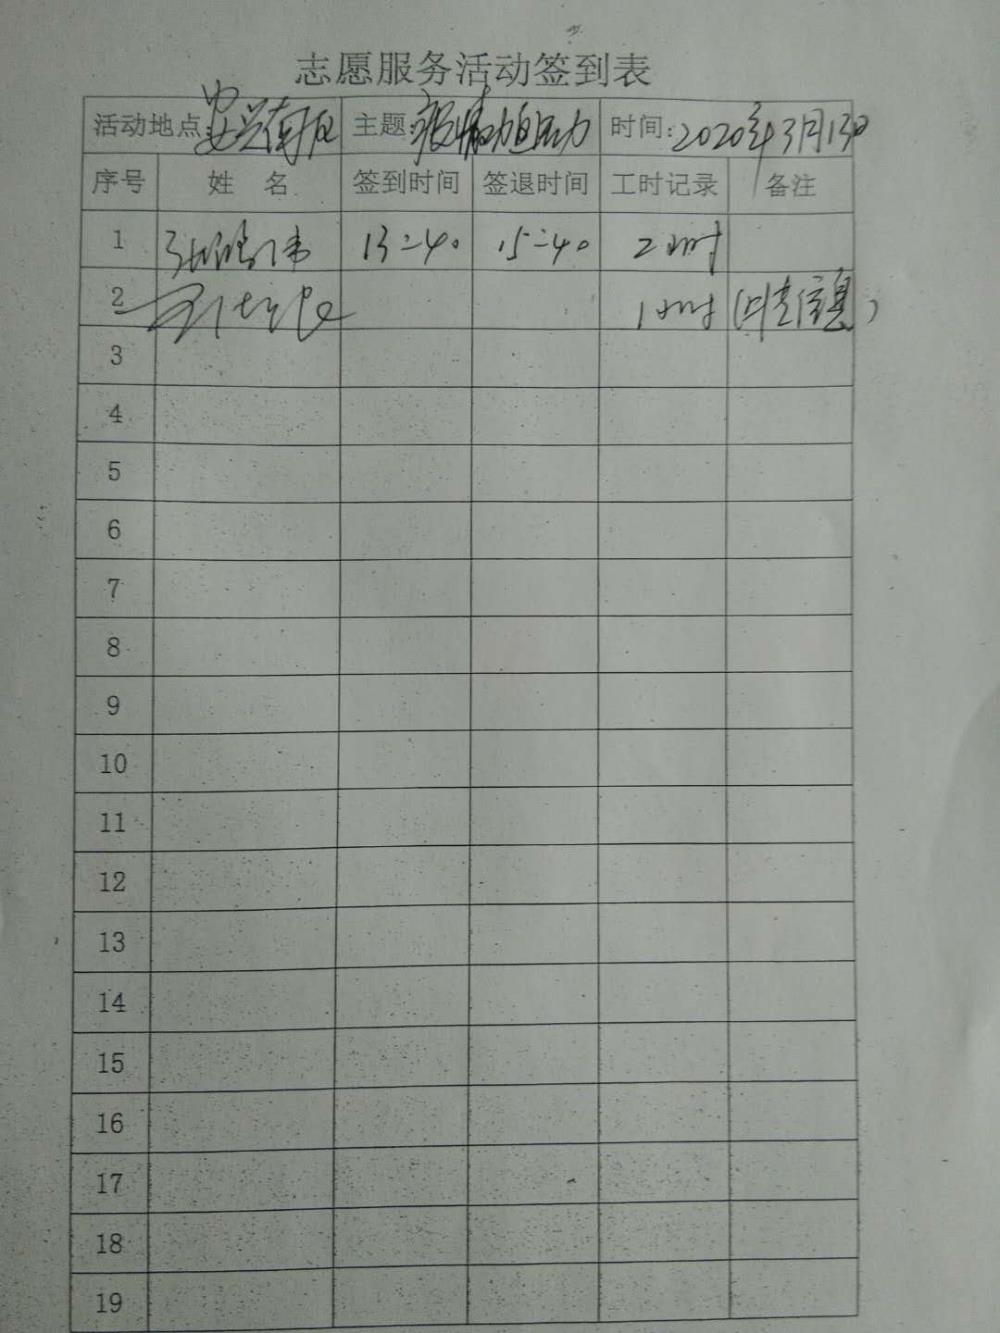 志愿服务活动签到表
活动地点:安兴南区 主题: 疫情 时间:2020年3月13日
序号 姓 名 签到时间 签退时间 工时记录 备注
1 13:40 15:40 2小时
2 1小时 信息)
3
4
5
6
7
8
9
10
11
12
13
14
15
16
17
18
19